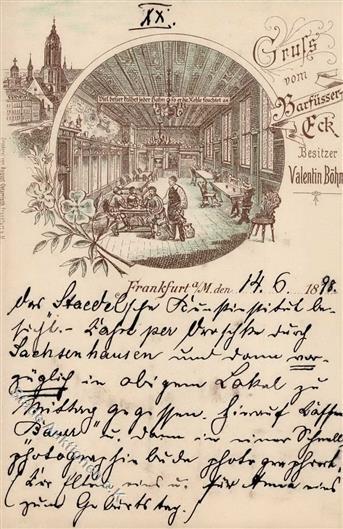 XX.
Gruss
vom
Barfüsser-
Eck
Besitzer
Valentin Böhm
Viel besser kullert jeder Hahn so er die Kehle feuchtet an
Frankfurt a/M. den 14. 6. 1898.
Das Staedel'sche Kunstinstitut be-
sicht. - Fahrt per Droschke durch
Sachsenhausen und dann vor-
züglich in obigem Lokal zu
Mittag gegessen. Hierauf Caffee
Bauer u. dann in einer Schnell
photographie bude photographirt.
(Für Eltern eins u. für Anna eins
zum Geburtstag.)